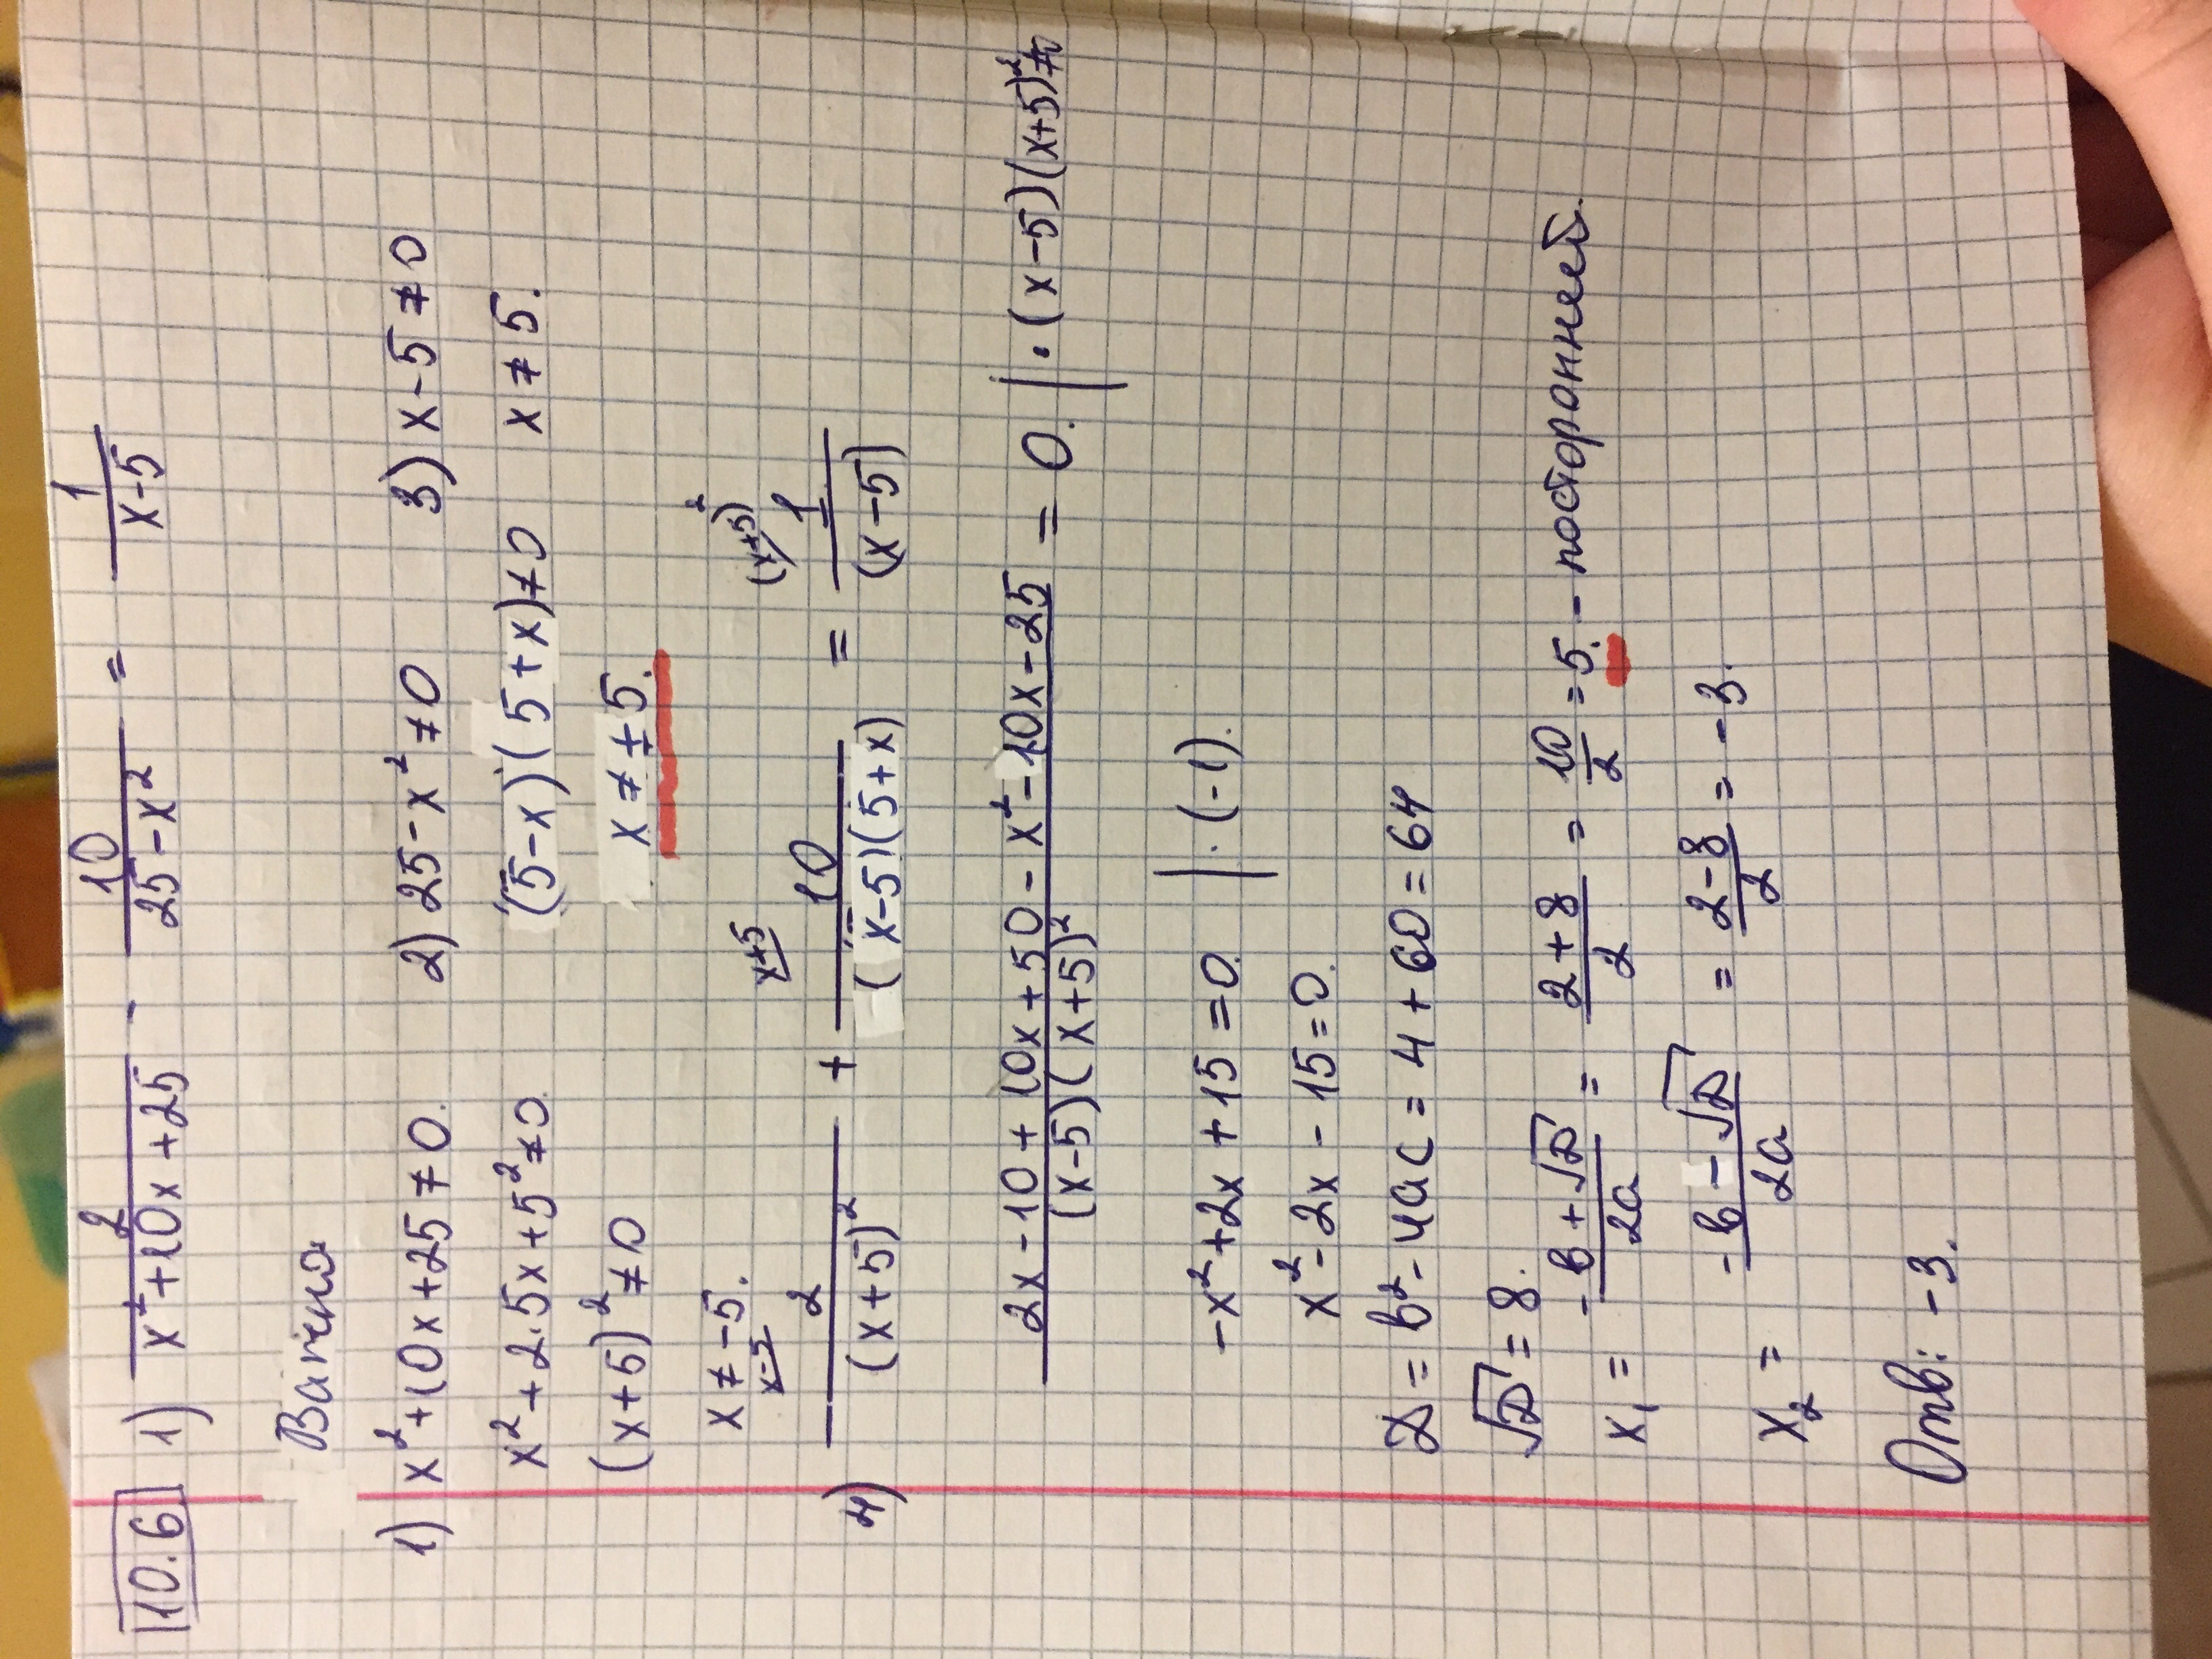 10.6 1) 2/(x²+10x+25) - 10/(25-x²) = 1/(x-5)
Важно
1) x²+10x+25≠0. 2) 25-x²≠0 3) x-5≠0
x²+2·5x+5²≠0. (5-x)(5+x)≠0 x≠5.
(x+5)²≠0 x≠±5.
x≠-5.
4) 2/(x+5)² (x-5 + 10/((x-5)(5+x)) (x+5 = 1/(x-5) (x+5)²
(2x-10+10x+50-x²-10x-25)/((x-5)(x+5)²) = 0. |·(x-5)(x+5)²≠0
-x²+2x+15=0. |·(-1).
x²-2x-15=0.
D=b²-4ac=4+60=64
√D=8.
x₁ = (-b+√D)/2a = (2+8)/2 = 10/2 = 5. - посторонней.
x₂ = (-b-√D)/2a = (2-8)/2 = -3.
Отв: -3.